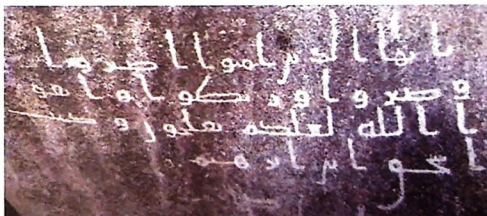 يايها الذين امنوا اصبروا
وصبروا وربطوا واتقو
ا الله لعلكم تفلحون وكتب